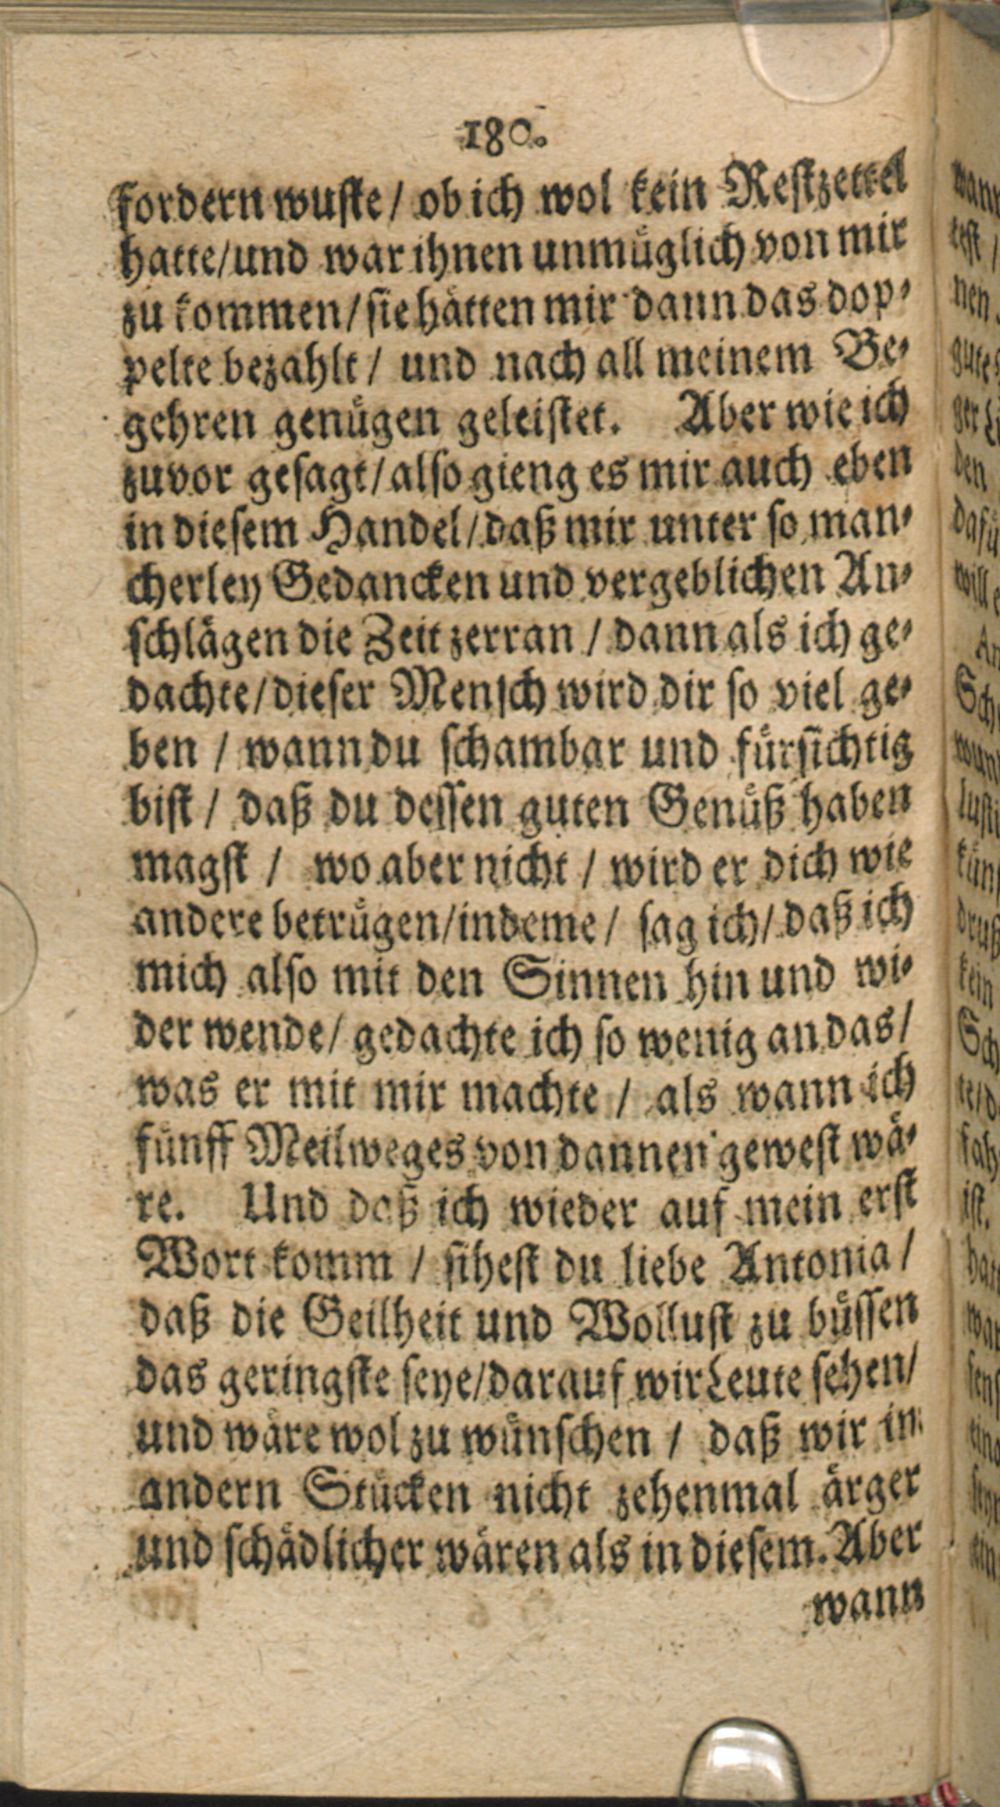 180.
fordern wuste / ob ich wol kein Restzettel
hatte/und war ihnen unmüglich von mir
zu kommen/sie hätten mir dann das dop-
pelte bezahlt / und nach all meinem Be-
gehren genügen geleistet. Aber wie ich
zuvor gesagt/also gieng es mir auch eben
in diesem Handel/daß mir unter so man-
cherley Gedancken und vergeblichen An-
schlägen die Zeit zerran / dann als ich ge-
dachte/dieser Mensch wird dir so viel ge-
ben / wann du schambar und fürsichtig
bist / daß du dessen guten Genüß haben
magst / wo aber nicht / wird er dich wie
andere betrügen/indeme / sag ich/ daß ich
mich also mit den Sinnen hin und wi-
der wende/ gedachte ich so wenig an das/
was er mit mir machte / als wann ich
fünff Meilweges von dannen gewest wä-
re. Und daß ich wieder auf mein erst
Wort komm / sihest du liebe Antonia /
daß die Geilheit und Wollust zu büssen
das geringste seye/darauf wir Leute sehen/
und wäre wol zu wünschen / daß wir in
andern Stücken nicht zehenmal ärger
und schädlicher wären als in diesem. Aber
wann